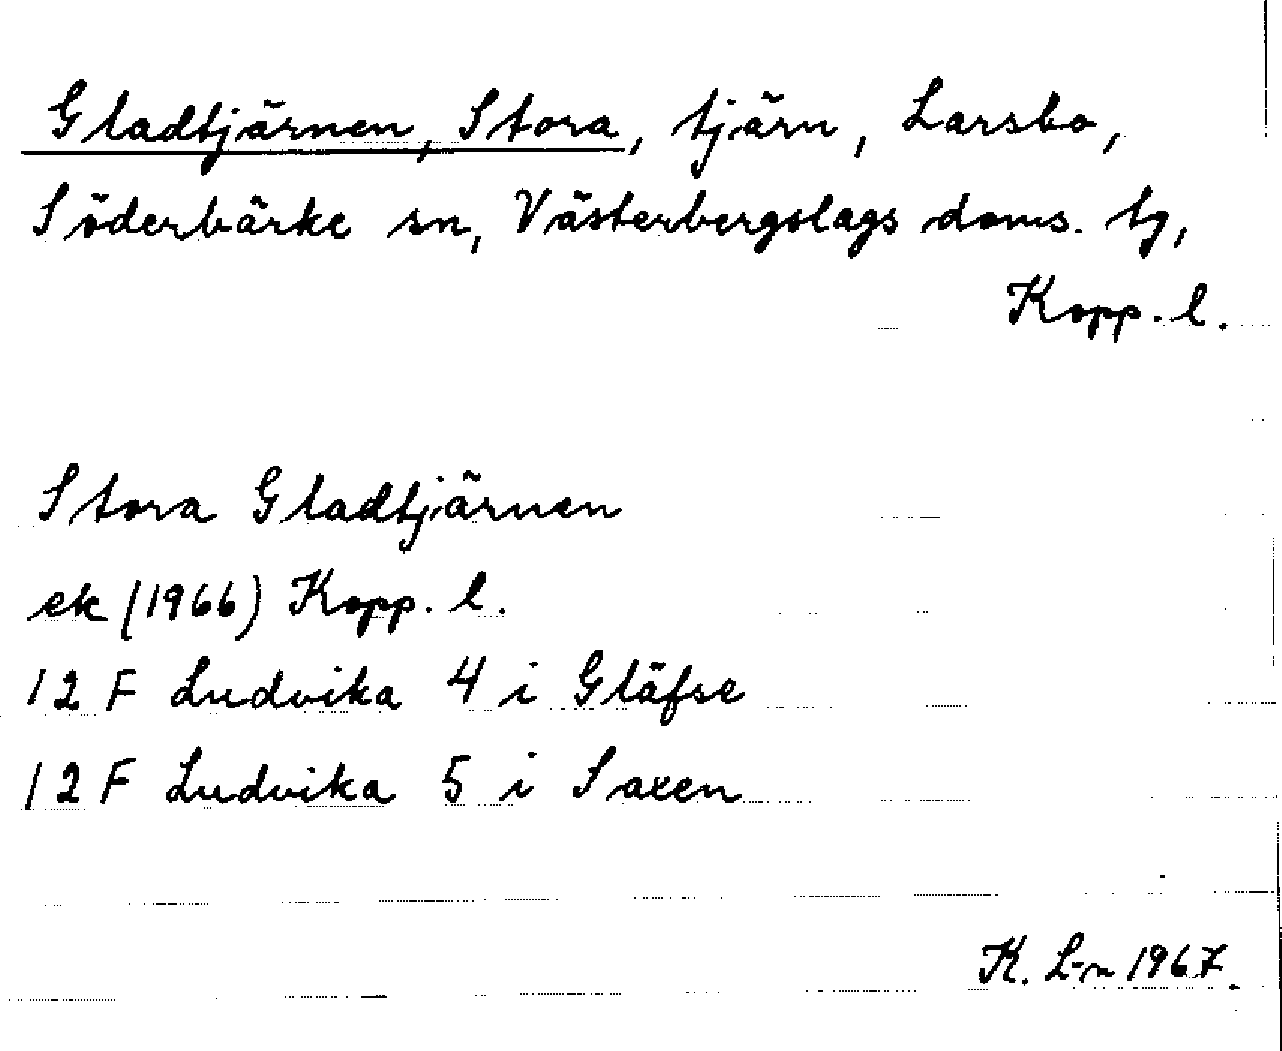 Gladtjärnen, Stora, tjärn, Larsbo,
Söderbärke sn, Västerbergslags doms. tg,
Kopp. l.
Stora Gladtjärnen
ek (1966) Kopp. l.
12 F Ludvika 4 i Gläfse
12 F Ludvika 5 i Saxen
K. L-n 1967.